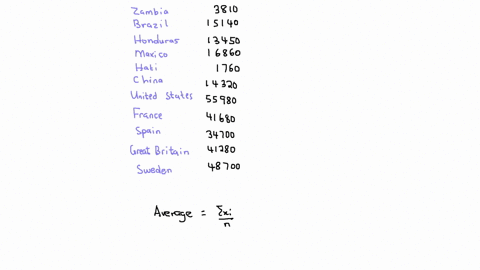 Zambia 3810
Brazil 15140
Honduras 13450
Mexico 16860
Hati 1760
China 14320
United States 55980
France 41680
Spain 34700
Great Britain 41280
Sweden 48700
Average = Σxi/n